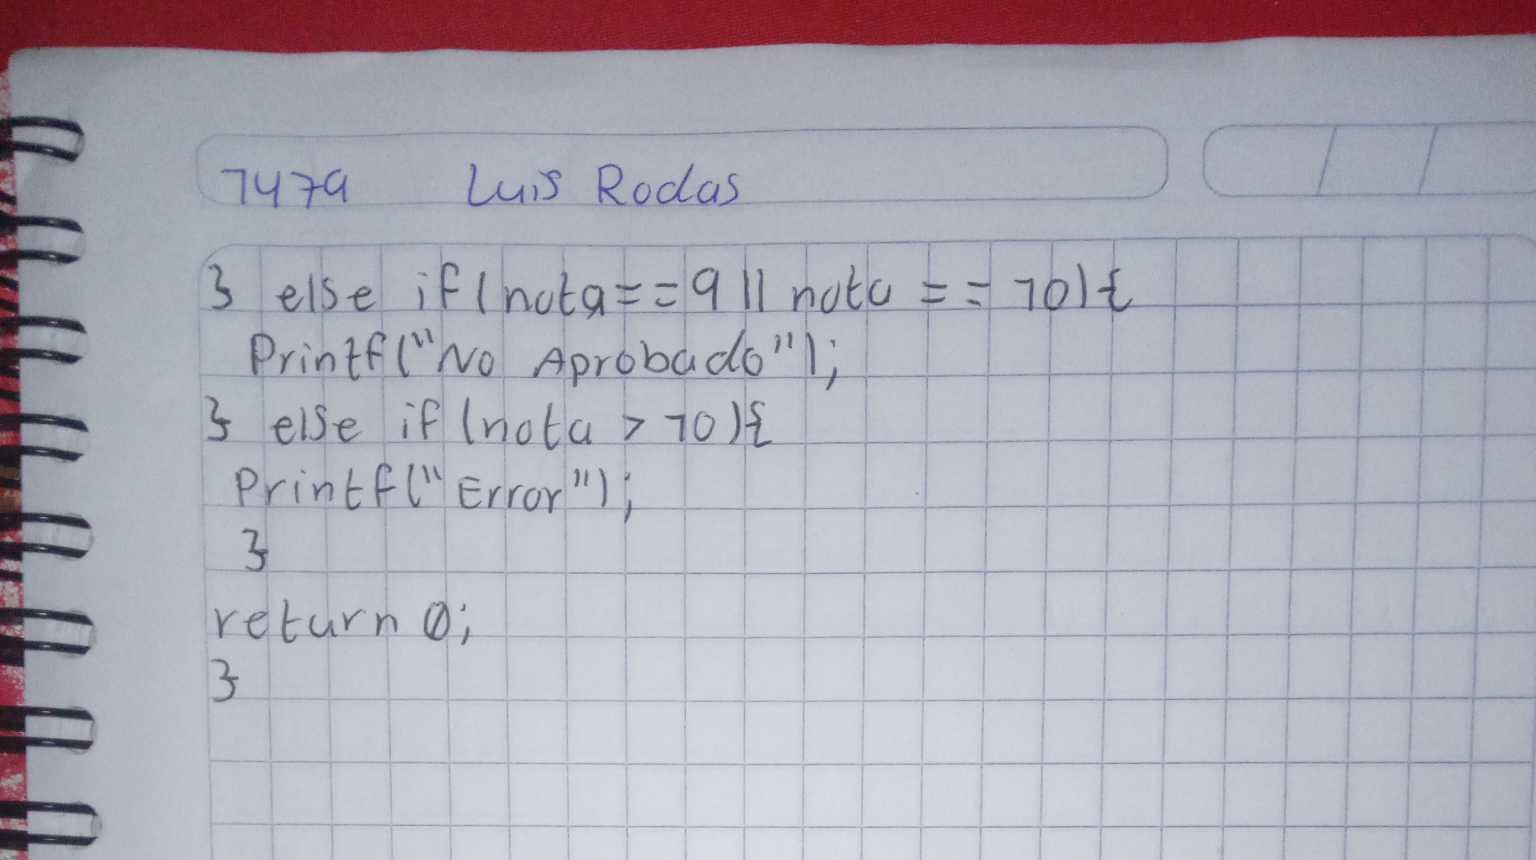 1479 Luis Rodas
} else if (nota == 9 || nota == 10) {
Printf("No Aprobado");
} else if (nota > 10) {
Printf("Error");
}
return 0;
}